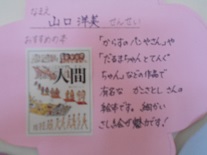 なまえ
山口 洋美 せんせい
おすすめの本
人間
「からすのパンやさん」や
「だるまちゃんとてんぐ
ちゃん」などの作品で
有名な かこさとし さんの
絵本です。細かい
さし絵が魅力です！